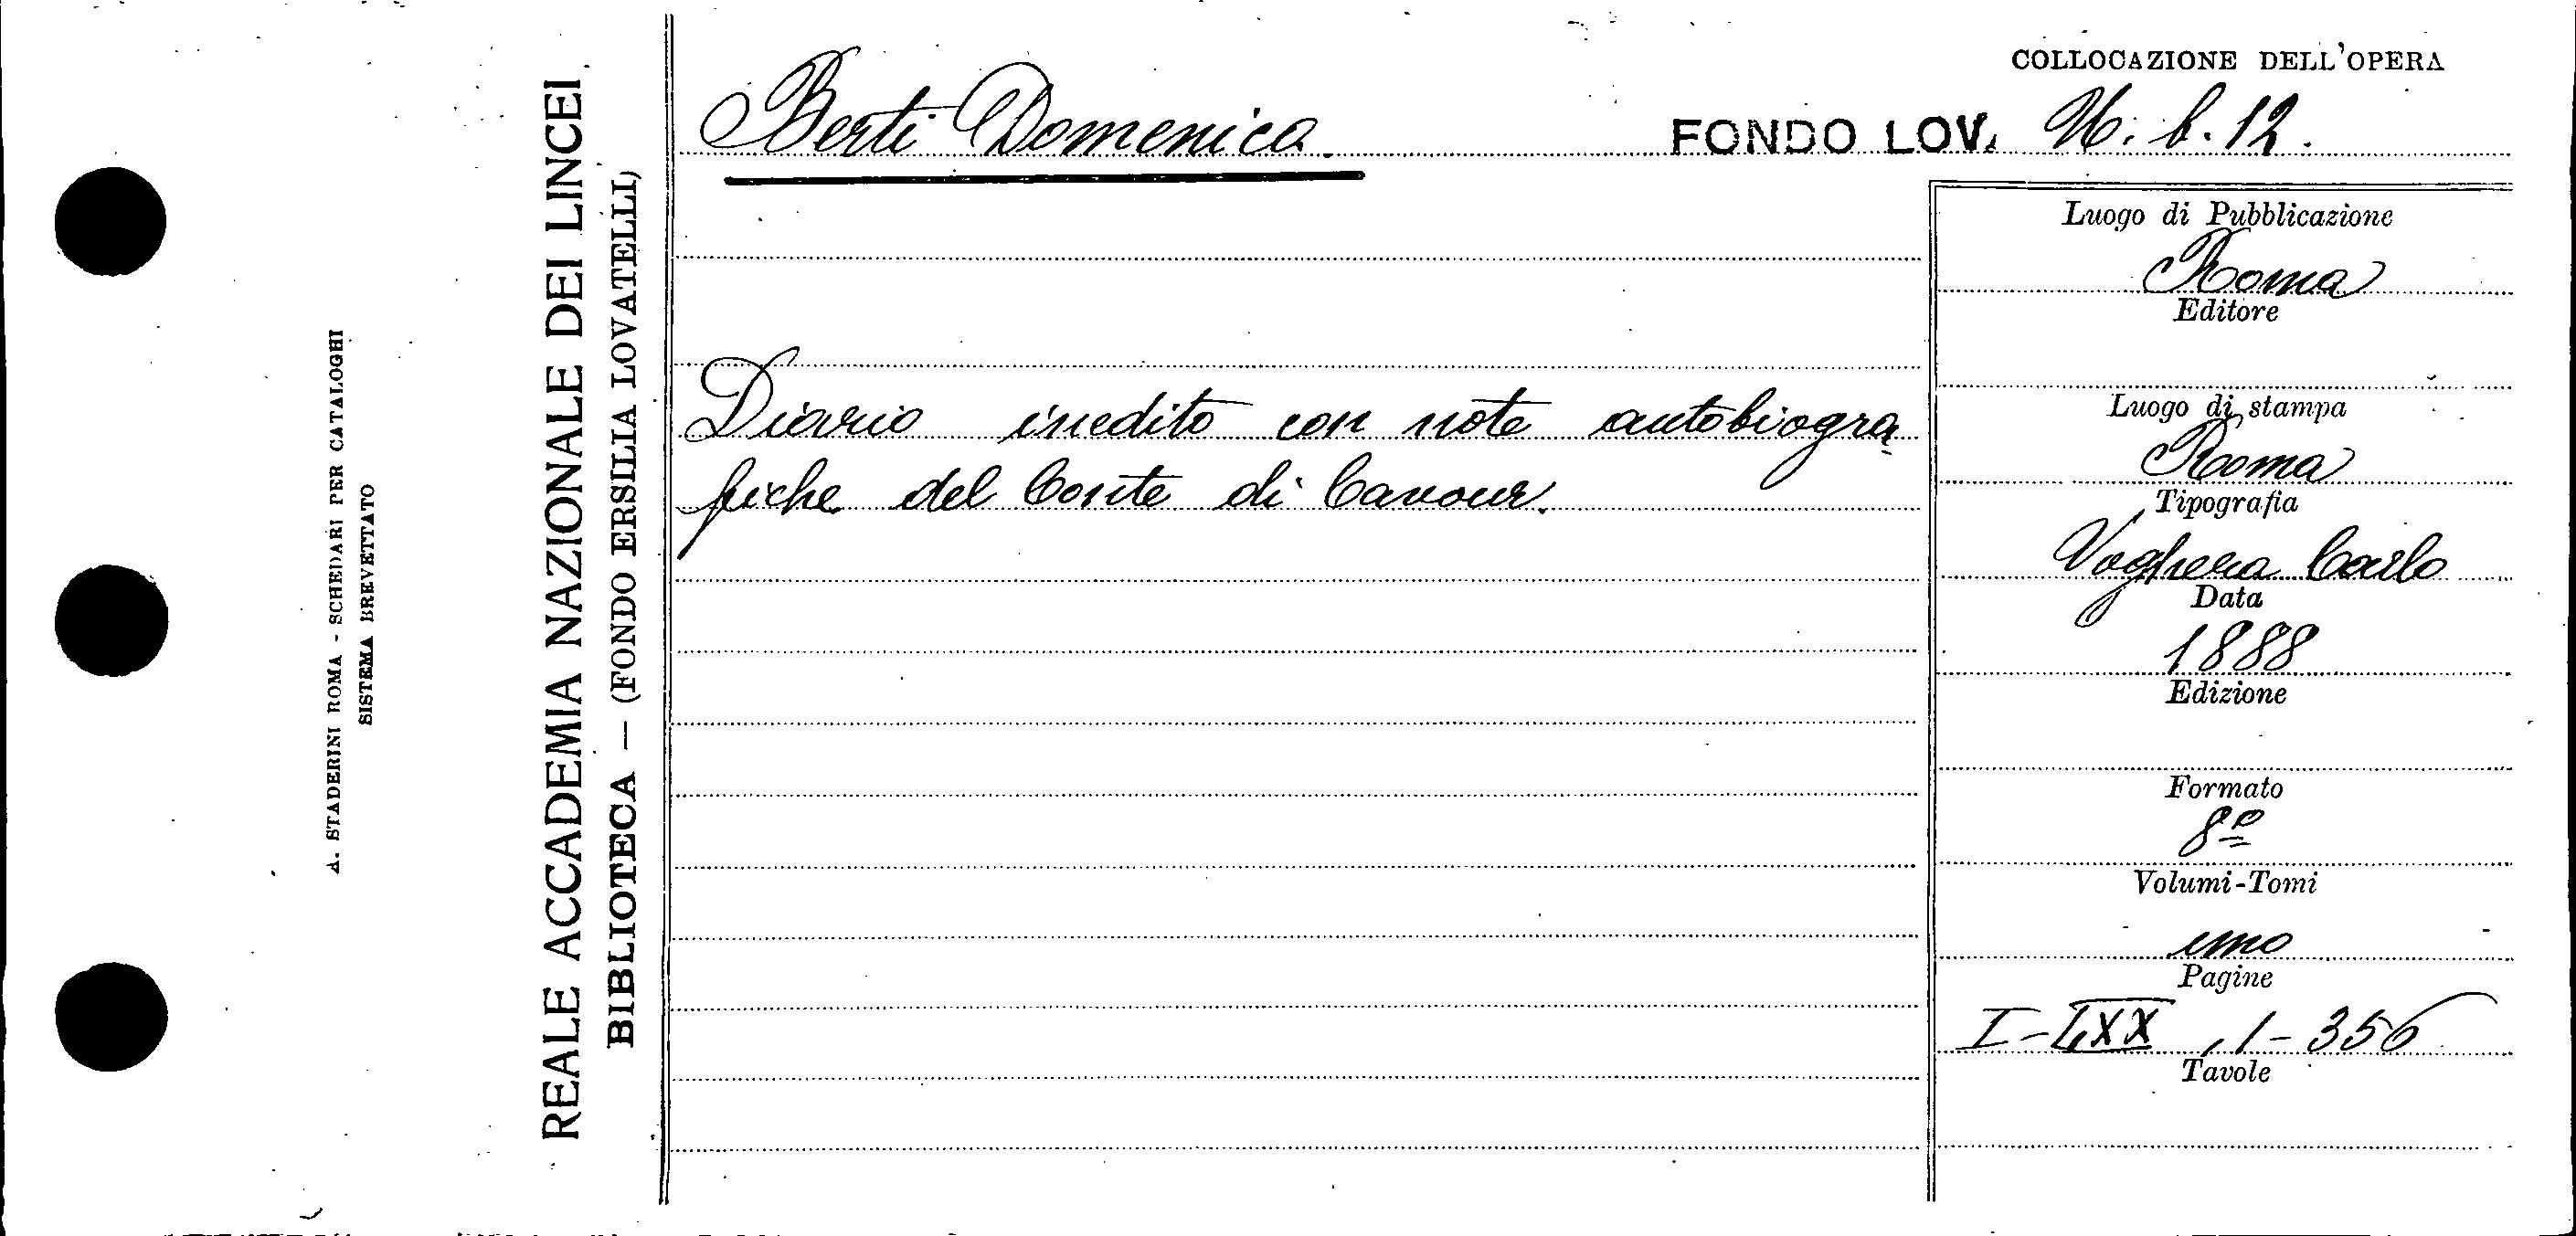 A. STADERINI ROMA - SCHEDARI PER CATALOGHI
SISTEMA BREVETTATO
REALE ACCADEMIA NAZIONALE DEI LINCEI
BIBLIOTECA — (FONDO ERSILIA LOVATELLI)
COLLOCAZIONE DELL'OPERA
Berti Domenica.
FONDO LOV. b. 12.
Diario inedito con note autobiogra
fiche del Conte di Cavour.
Luogo di Pubblicazione
Roma
Editore
Luogo di stampa
Roma
Tipografia
Voghera Carlo
Data
1888
Edizione
Formato
8º
Volumi-Tomi
uno
Pagine
I-LXX, 1-356
Tavole